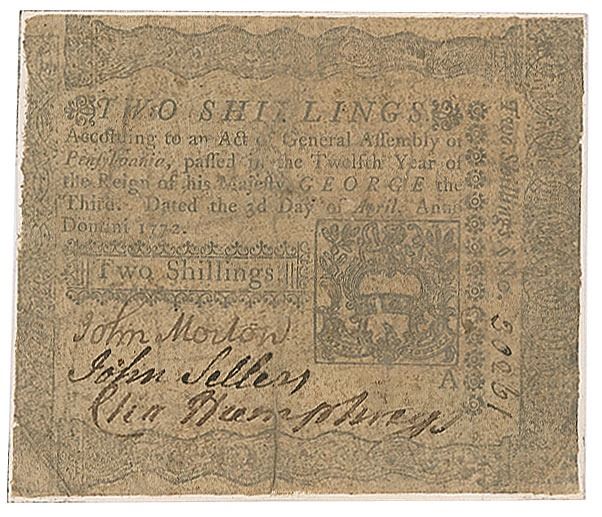 TWO SHILLINGS.
According to an Act of General Assembly of
Penſylvania, paſſed in the Twelfth Year of
the Reign of his Majeſty GEORGE the
Third. Dated the 3d Day of April, Anno
Domini 1772.
Two Shillings.
John Morton
John Sellers
Cha Humphreys
A
Two Shillings. No.